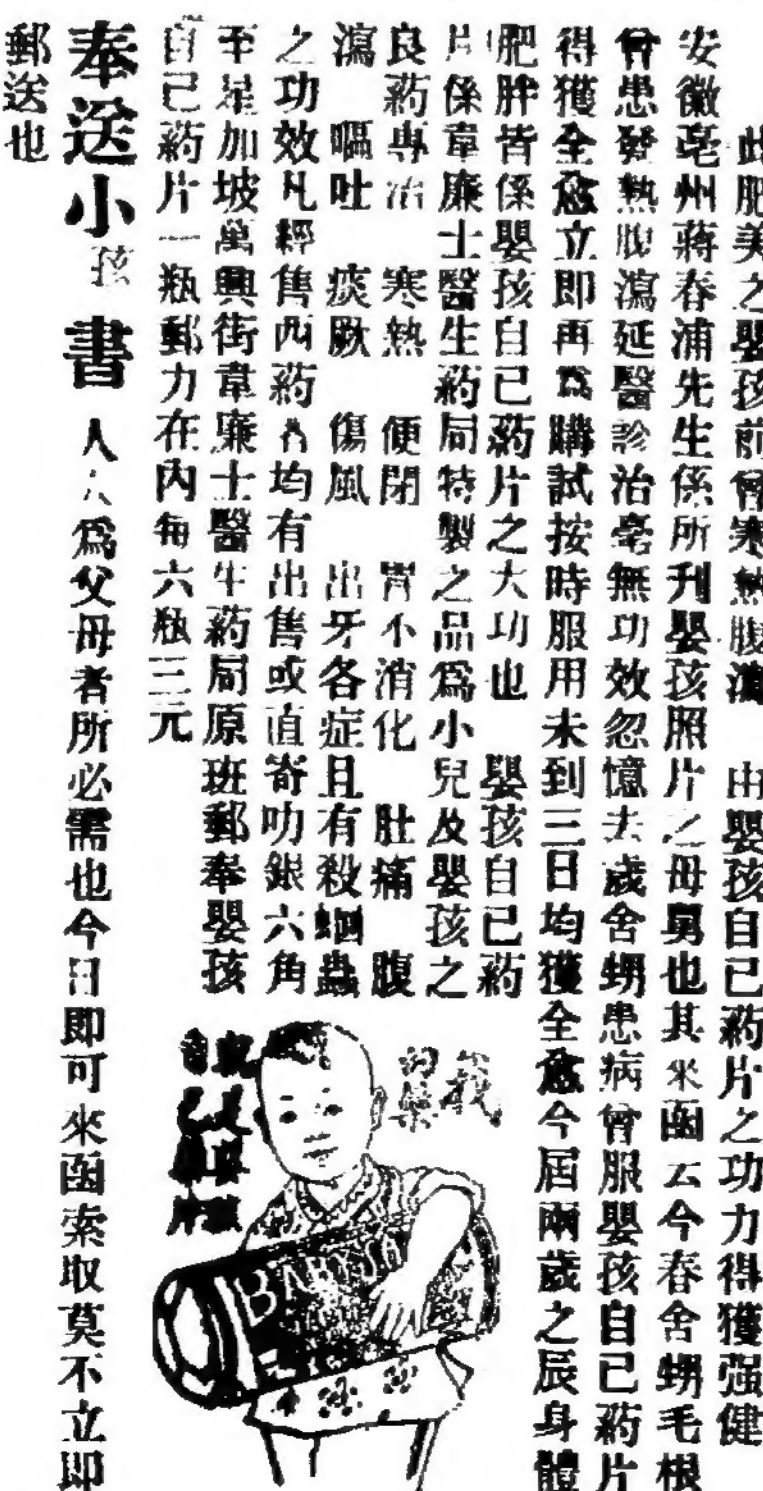 此肥美之嬰孩前曾寒熱腹瀉　由嬰孩自已葯片之功力得獲强健
安徽亳州蔣春浦先生係所刊嬰孩照片之母舅也其來函云今春舍甥毛根
曾患發熱腹瀉延醫診治毫無功效忽憶去歲舍甥患病曾服嬰孩自已葯片
得獲全愈立即再爲購試按時服用未到三日均獲全愈今屆兩歲之辰身體
肥胖皆係嬰孩自已葯片之大功也　嬰孩自已葯
片係韋廉士醫生葯局特製之品爲小兒及嬰孩之
良葯專治　寒熱　便閉　胃不消化　肚痛　腹
瀉　嘔吐　痰厥　傷風　出牙各症且有殺蛔蟲
之功效凡經售西葯者均有出售或直寄叻銀六角
至星加坡萬興街韋廉士醫生葯局原班郵奉嬰孩
自己葯片一瓶郵力在內每六瓶三元
奉送小孩書　人人爲父母者所必需也今日即可來函索取莫不立即
郵送也
我
的藥
就是嬰孩
自己藥片
BABY'S